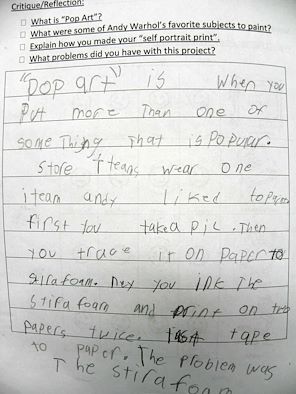 Critique/Reflection:
□ What is "Pop Art"?
□ What were some of Andy Warhol's favorite subjects to paint?
□ Explain how you made your "self portrait print".
□ What problems did you have with this project?
"Pop art" is when you
Put more Than one of
some Thing That is Popular.
Store Iteans wear one
iteam andy liked to paint
first you take a pic. Then
you trace it on Paper to
stirafoam. Nex you ink The
stirafoam and print on two
papers twice. last tape
to paper. The problem was
The stirafoam